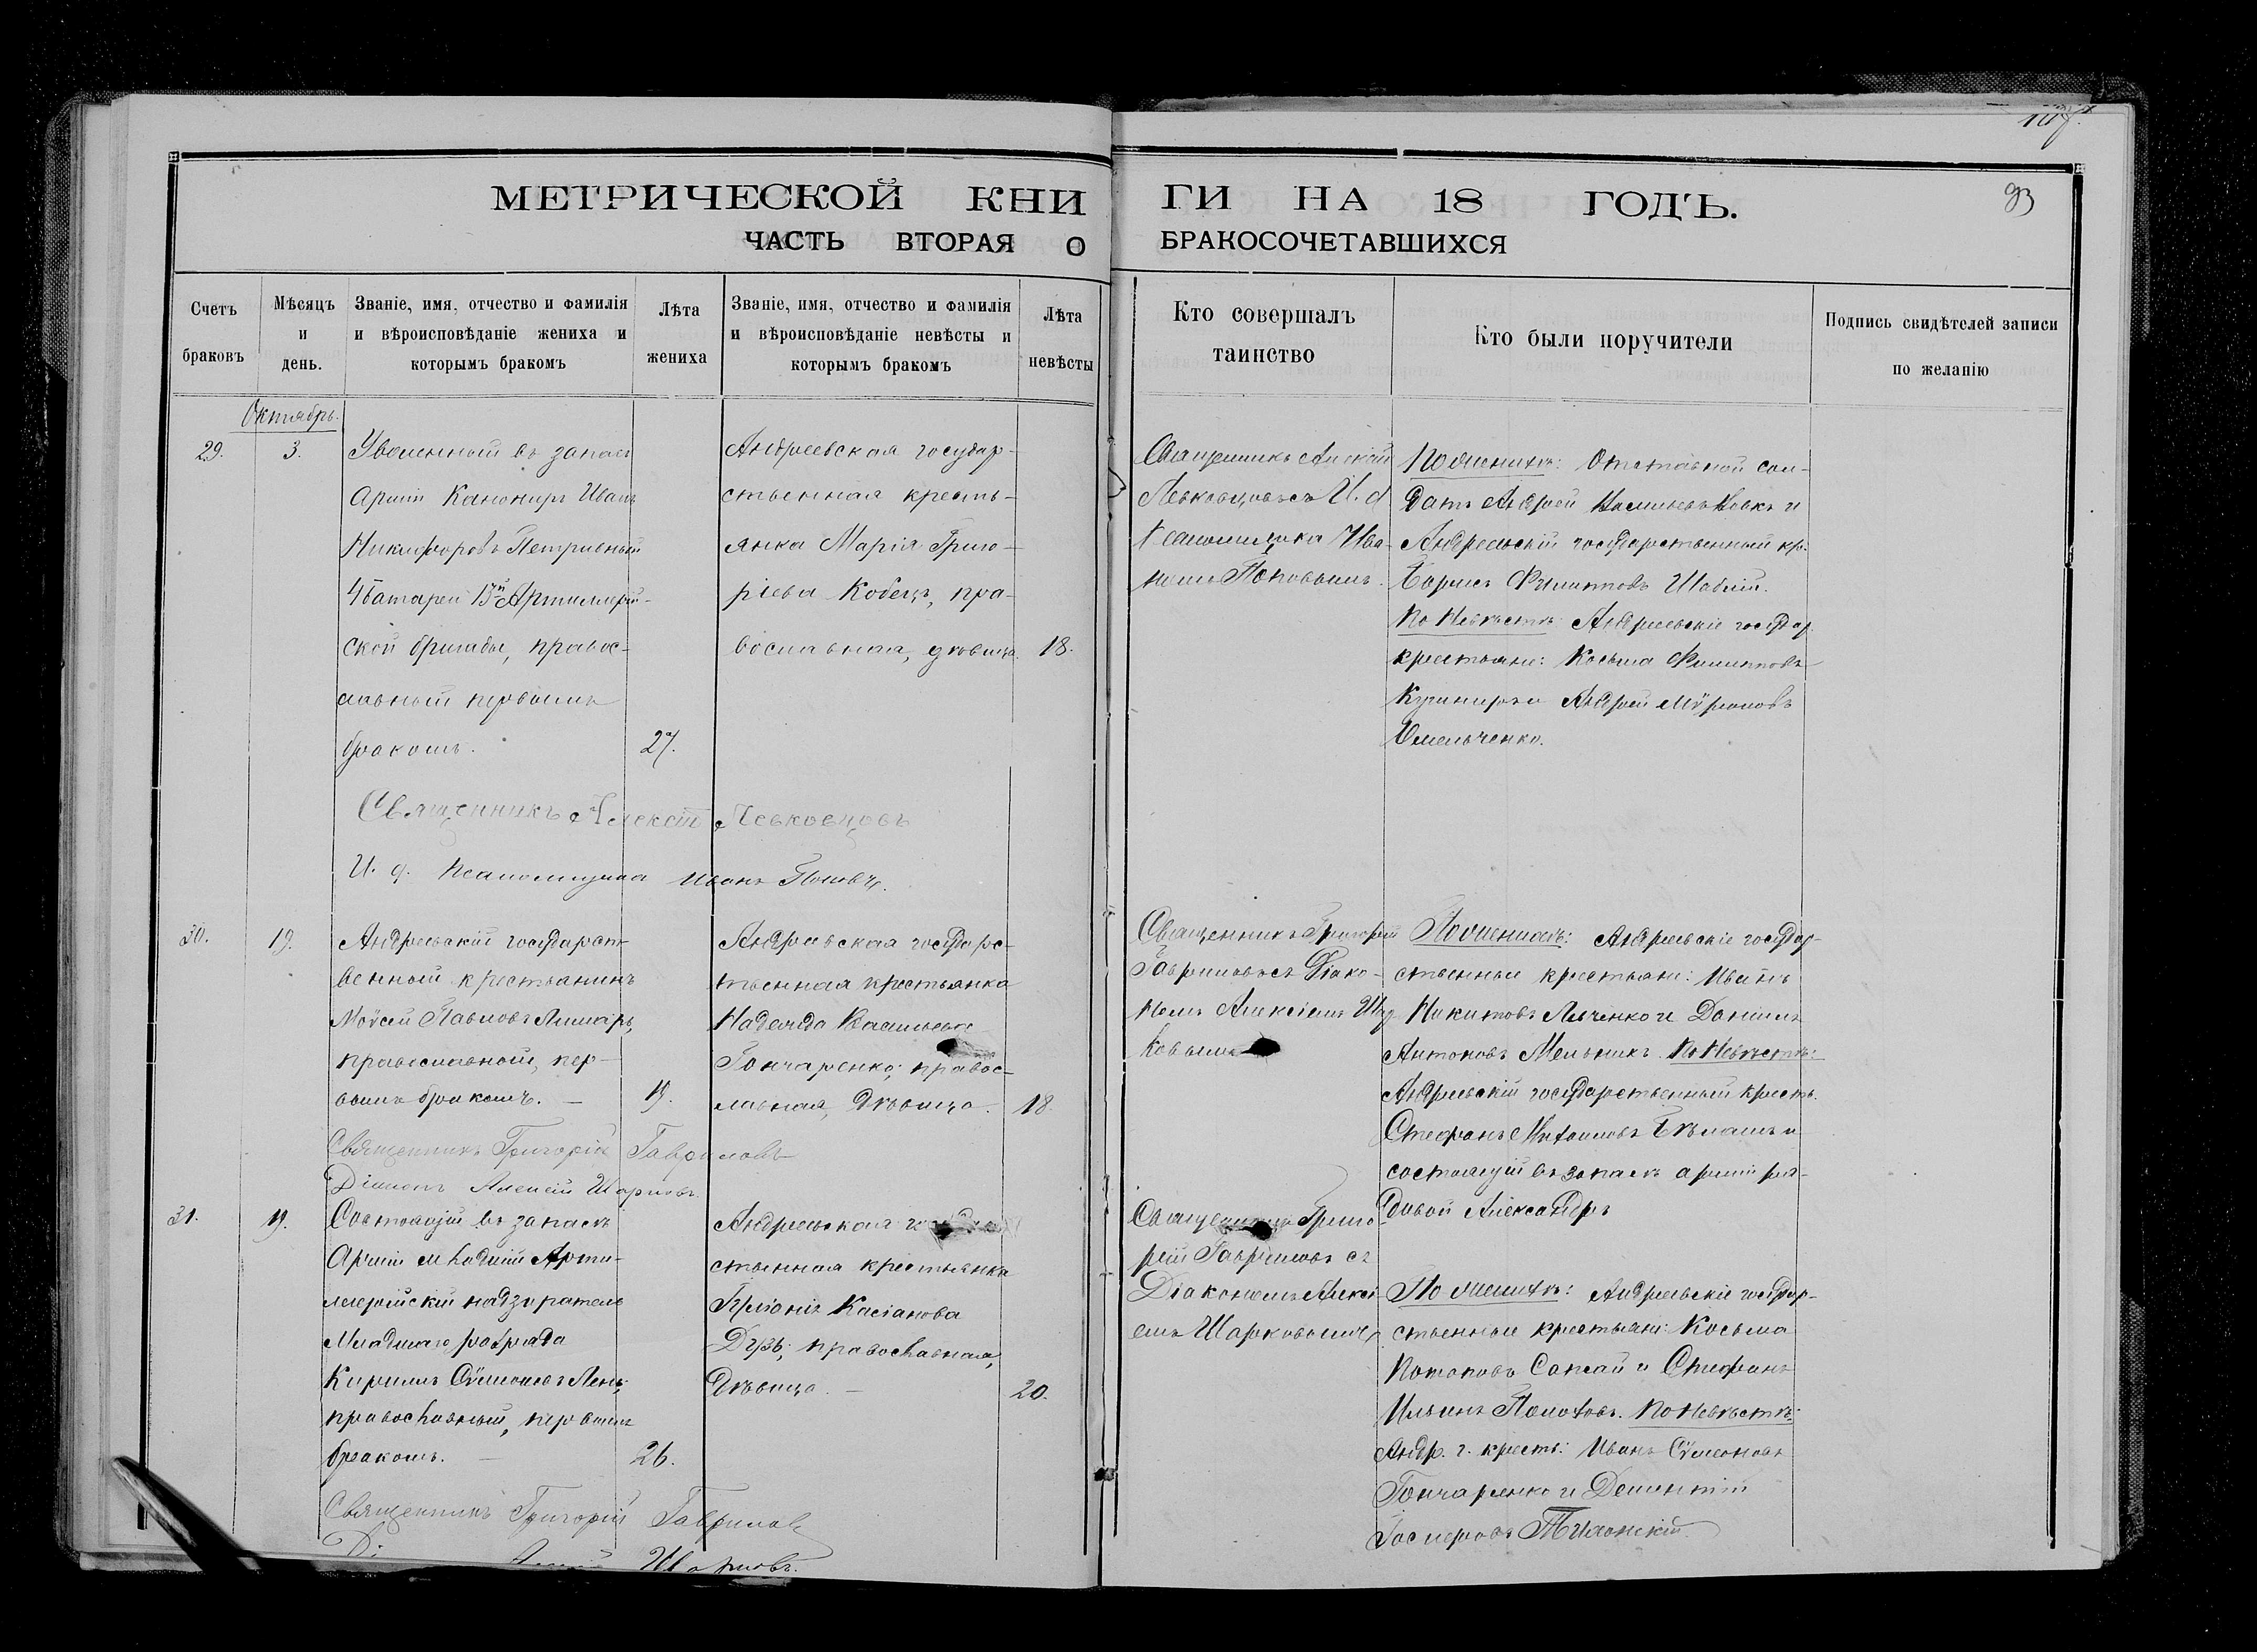 МЕТРИЧЕСКОЙ КНИГИ НА 18 ГОДЪ.
93
ЧАСТЬ ВТОРАЯ О БРАКОСОЧЕТАВШИХСЯ
Счетъ браковъ
Мѣсяцъ и день.
Званіе, имя, отчество и фамилія
и вѣроисповѣданіе жениха и
которымъ бракомъ
Лѣта
жениха
Званіе, имя, отчество и фамилія
и вѣроисповѣданіе невѣсты и
которымъ бракомъ
Лѣта
невѣсты
Кто совершалъ
таинство
Кто были поручители
Подпись свидѣтелей записи
по желанію
Октябрь.
29.
3.
Уволенный въ запасъ
Арміи Канониръ Иванъ
Никифоровъ Петривный
4 батареи 13й Артиллерій-
ской бригады, правос-
лавный первымъ
бракомъ.
27.
Андреевская государ-
ственная кресть-
янка Марія Григо-
ріева Кобецъ, пра-
вославная, дѣвица.
18.
Священникъ Алексій
Левковцовъ съ И. д
Псаломщика Ива-
номъ Поповымъ.
По женихѣ: Отставной сол-
датъ Андрей
Андреевскій государственный кр.
Борисъ Филиповъ Шаблій.
По Невѣстѣ: Андреевскіе государ.
крестьяне: Косьма Филипповъ
Андрей Мѵроновъ
Омельченко.
Священникъ Алексій Левковцовъ
И. д. Псаломщика Иванъ Поповъ.
30.
19.
Андреевскій государст-
венный крестьянинъ
Моѵсей Павловъ Лимарь,
православный, пер-
вымъ бракомъ. —
19.
Андреевская государс-
твенная крестьянка
Надежда Васильева
Гончаренко, правос-
лавная, дѣвица.
18.
Священникъ Григорій
Гавриловъ съ Діако-
номъ Алексіемъ Шар
ковымъ
По женихѣ: Андреевскіе государ-
ственные крестьяне: Иванъ
Никитовъ Ляченко и Даніилъ
Антоновъ Мельникъ. По Невѣстѣ:
Андреевскій государственный кресть.
Стефанъ Михаиловъ и
состоящій въ запасѣ арміи ря-
довой Александръ
Священникъ Григорій Гавриловъ
Діаконъ Алексій Шарковъ.
31.
19.
Состоящій въ запасѣ
Арміи младшій Арти-
лерійскій надзиратель
Младшаго разряда
Кирилъ Сѵмеоновъ Лень,
православный, первымъ
бракомъ. —
26.
Андреевская
ственная крестьянка
Касіанова
православная,
Дѣвица. —
20.
Священникъ Григо
рій Гавриловъ съ
Діакономъ Алексі-
емъ Шарковымъ
По женихѣ: Андреевскіе государ-
ственные крестьяне: Косьма
Потаповъ Сапсай и Стефанъ
Ильинъ Полотовъ. По Невѣстѣ:
Андр. г. кресть: Иванъ Сѵмеоновъ
Гончаренко и Дементій
Священникъ Григорій Гавриловъ
Шарковъ.